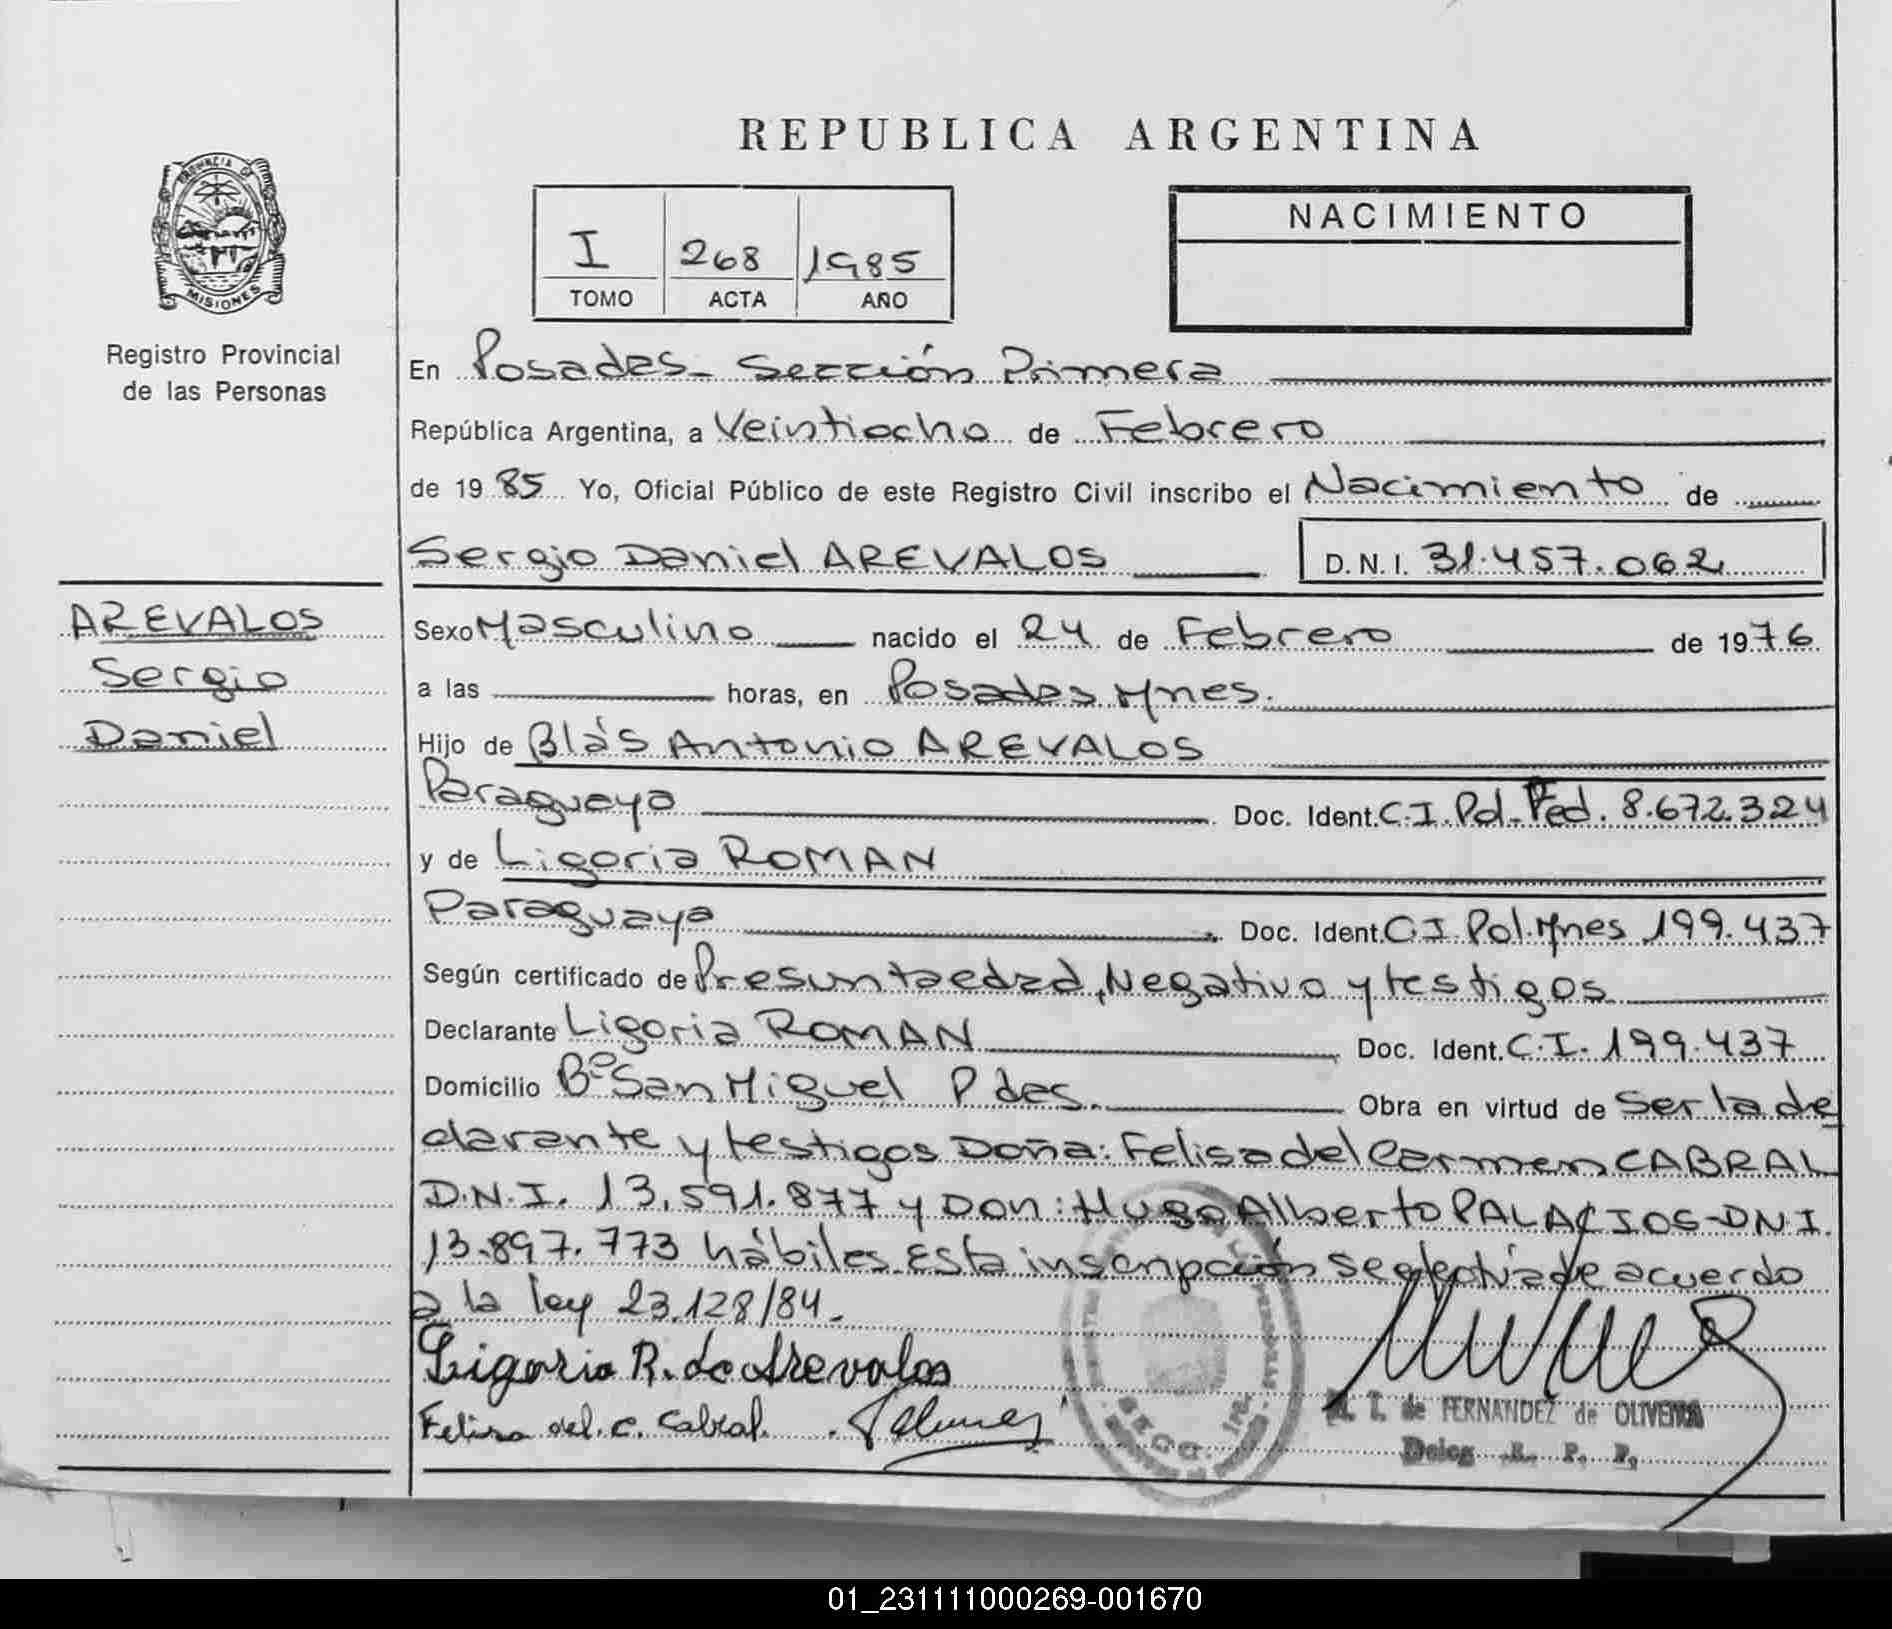 REPUBLICA ARGENTINA
PROVINCIA DE
MISIONES
Registro Provincial
de las Personas
I 268 1985
TOMO ACTA AÑO
NACIMIENTO
En Posadas - Sección Primera
República Argentina, a Veintiocho de Febrero
de 1985 Yo, Oficial Público de este Registro Civil inscribo el Nacimiento de
Sergio Daniel AREVALOS D.N.I. 31.457.062
AREVALOS
Sergio
Daniel
Sexo Masculino nacido el 24 de Febrero de 1976
a las horas, en Posadas Mnes.
Hijo de Blás Antonio AREVALOS
Paraguaya Doc. Ident. C.I. Pol. Fed. 8.672.324
y de Ligoria ROMAN
Paraguaya Doc. Ident. C.I. Pol. Mnes 199.437
Según certificado de Presunta edad, Negativo y testigos
Declarante Ligoria ROMAN Doc. Ident. C.I. 199.437
Domicilio Bº San Miguel Pdas. Obra en virtud de Ser la de
clarante y testigos Doña: Felisa del Carmen CABRAL
D.N.I. 13.591.877 y Don: Hugo Alberto PALACIOS - DNI.
13.897.773 hábiles. Esta inscripción se efectúa de acuerdo
a la ley 23.128/84.-
Ligoria R. de Arevalos
Felisa del. C. Cabral.
M. T. de FERNANDEZ de OLIVEIRA
Deleg. R. P. P.
01_231111000269-001670